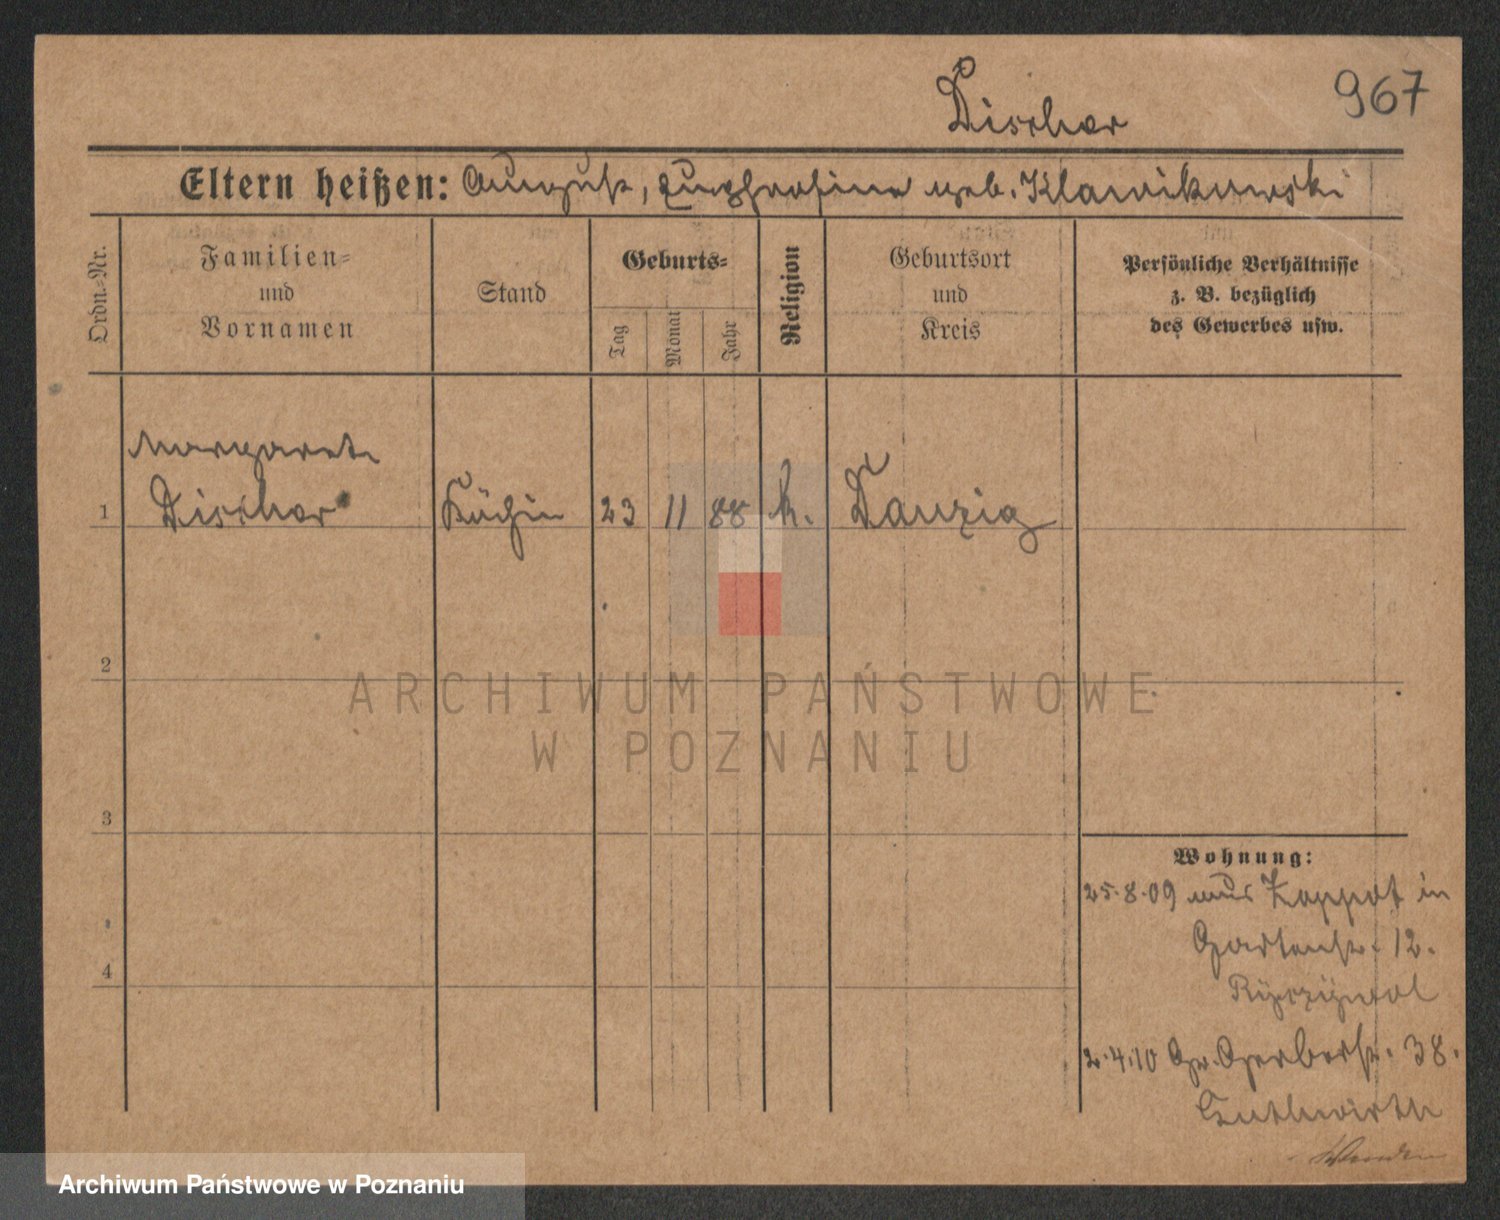 967
Discher
Eltern heißen: August, Euphrosina geb. Klawikowski
Ordn.-Nr.
Familien=
und
Vornamen
Stand
Geburts=
Tag
Monat
Jahr
Religion
Geburtsort
und
Kreis
Persönliche Verhältnisse
z. B. bezüglich
des Gewerbes usw.
Margarete
1 Discher Köchin 23 11 88 k. Danzig
2
3
4
Wohnung:
25.8.09 aus Zoppot in
Gartenstr. 12.
2.4.10 Gr. Gerberstr. 38.
ARCHIWUM PAŃSTWOWE
W POZNANIU
Archiwum Państwowe w Poznaniu